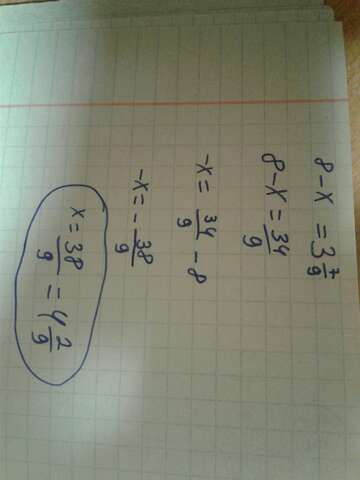 8 - x = 3 7/9
8 - x = 34/9
-x = 34/9 - 8
-x = - 38/9
x = 38/9 = 4 2/9